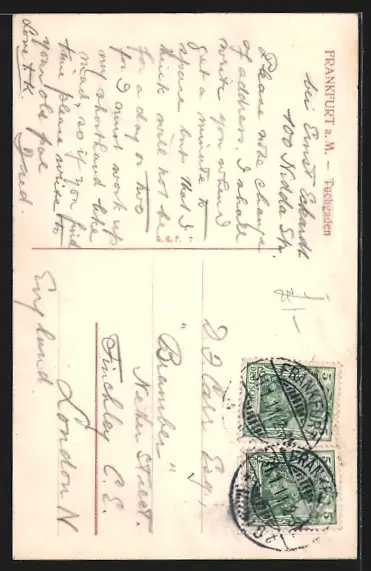 FRANKFURT a. M. – Tuchgaden
bei Ernst
100 Nidda Str.
Please note change
of address. I shall
write you when I
get a minute to
spare but that I
think will not be
for a day or two
for I must work up
my shorthand like
mad, so if you find
time please write to
your old pal
Love to H.
D. J. Carr Esq.,
"Bramber"
Nether Street.
Finchley C. E.
London N
England.
FRANKFURT
FRANKFURT
5
5
5
5